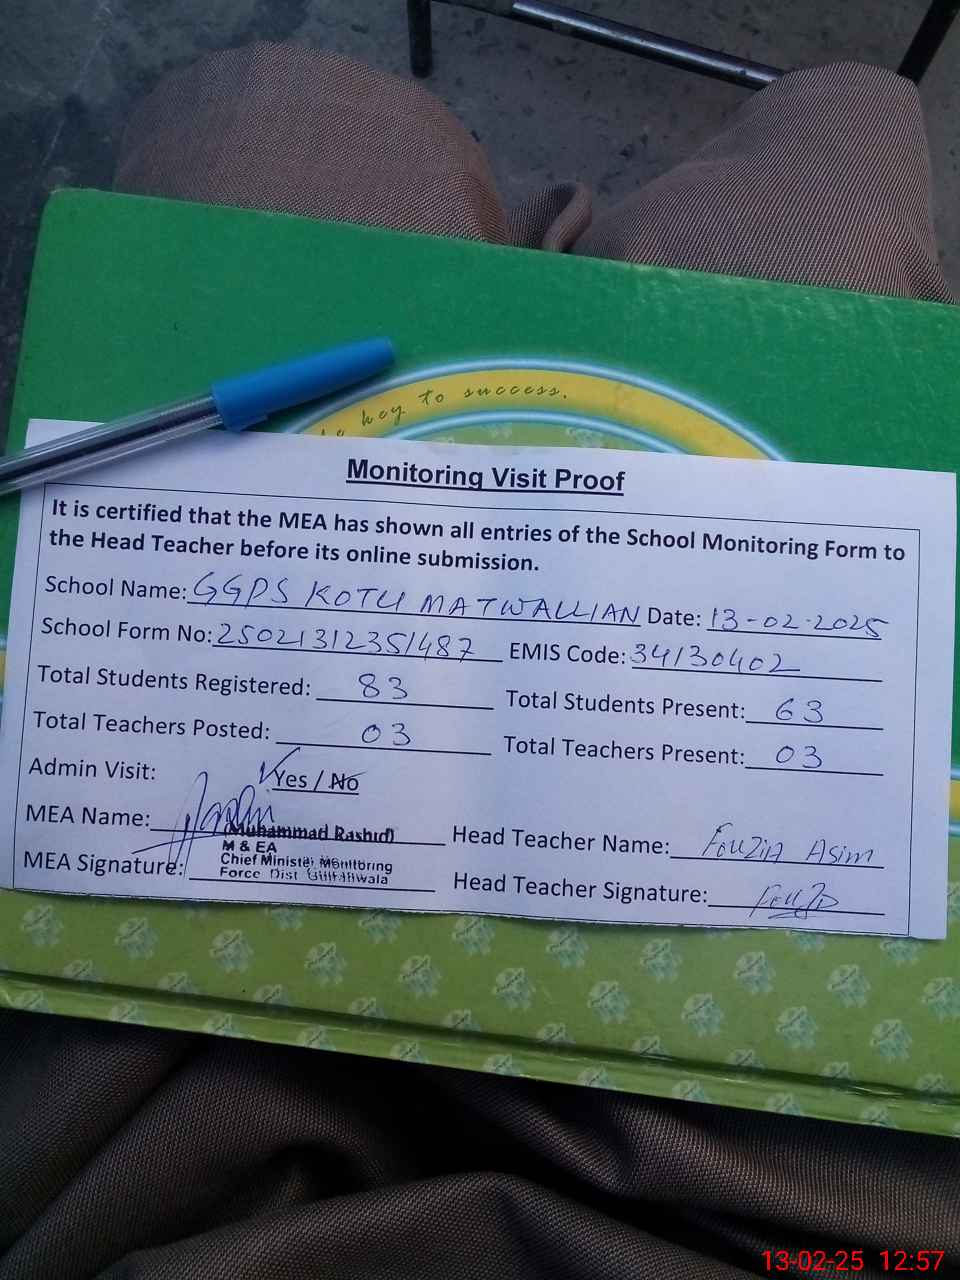 key to success.
Monitoring Visit Proof
It is certified that the MEA has shown all entries of the School Monitoring Form to
the Head Teacher before its online submission.
School Name: GGPS KOTLI MATWALLIAN Date: 13-02-2025
School Form No: 25021312351487 EMIS Code: 34130402
Total Students Registered: 83 Total Students Present: 63
Total Teachers Posted: 03 Total Teachers Present: 03
Admin Visit: Yes / No
MEA Name: (Muhammad Rashid) Head Teacher Name: Fouzia Asim
M & EA
Chief Minister Monitoring
MEA Signature: Force Dist Gujranwala Head Teacher Signature:
13-02-25 12:57